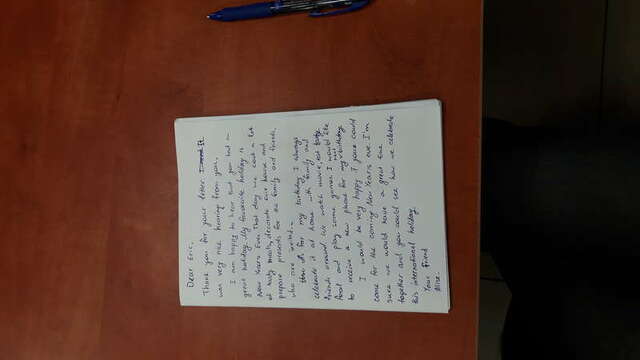 Dear Eric,
Thank you for your letter. It
was very nice hearing from you.
I am happy to hear that you had a
great holiday. My favourite holiday is
New Year's Eve. That day we cook a lot
of tasty meals, decorate our house and
prepare presents for the family and friends,
who are invited.
As for my birthday I always
celebrate it at home with family and
friends around. We watch movie, eat tasty
food and play some games. I would like
to receive a new phone for my birthday.
I would be very happy if you could
come for the coming New Year's eve. I'm
sure we would have a great time
together and you could see how we celebrate
this international holiday.
Your friend
Alise.